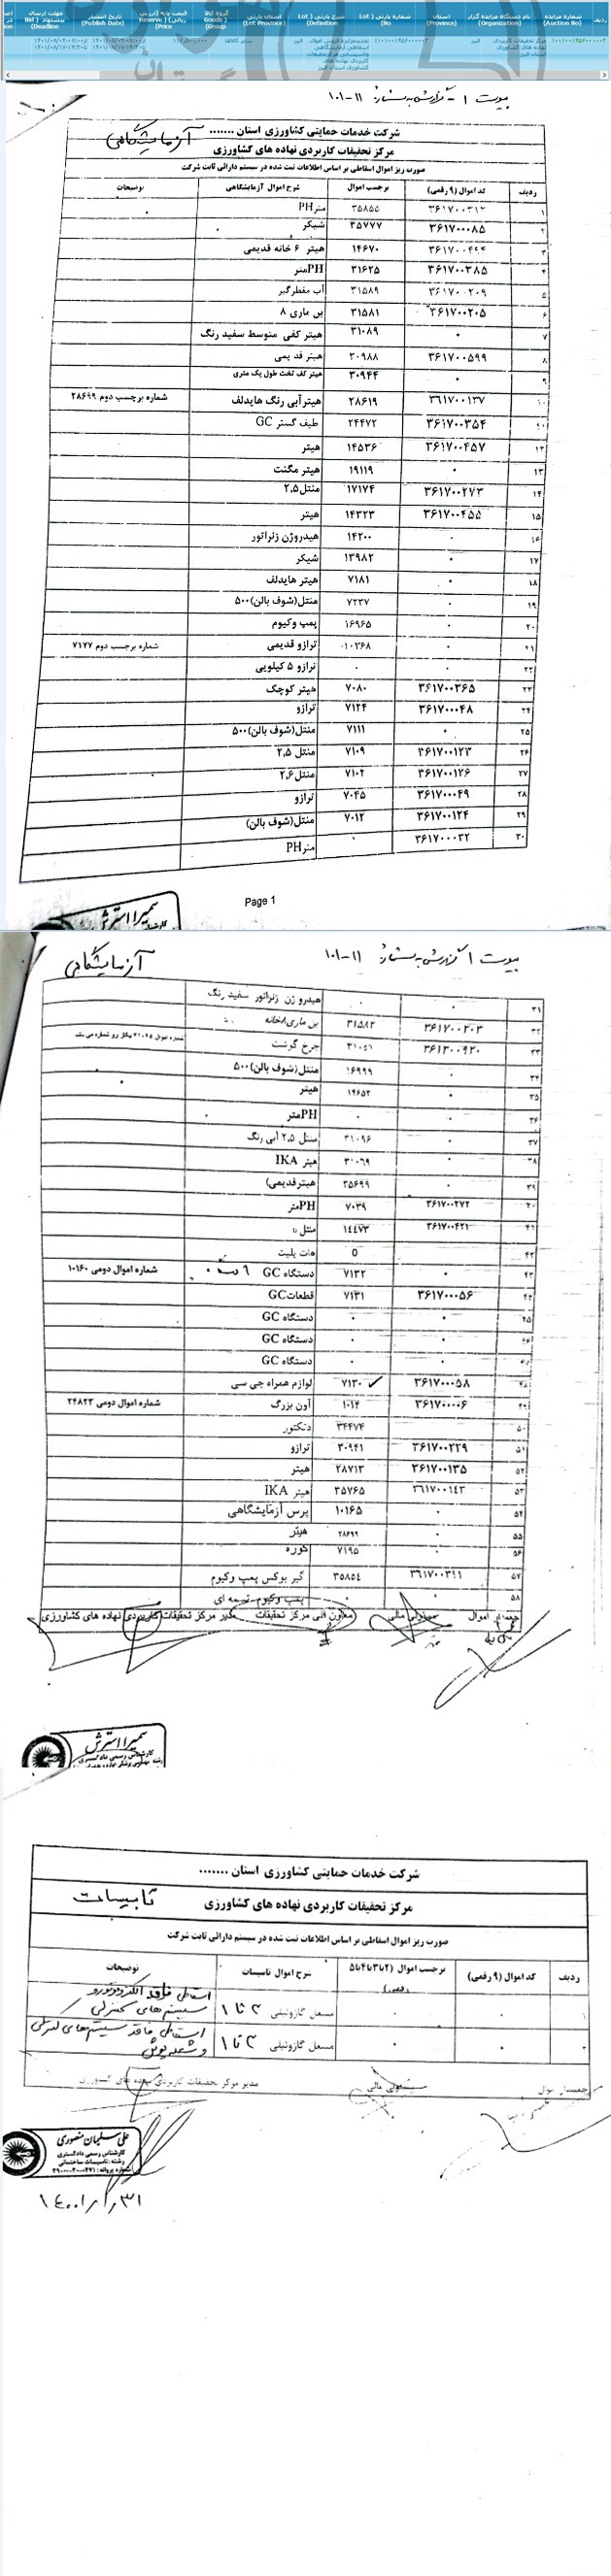 ردیف شماره مزایده (Auction No) نام دستگاه مزایده گزار (Organization) استان (Province) شماره پارتی ( Lot No) شرح پارتی ( Lot Definition) استان پارتی (Lot Province) گروه کالا ( Goods Group) قیمت پایه (ارزش ریالی) ( Reserve Price) تاریخ انتشار (Publish Date) مهلت ارسال پیشنهاد ( Bid Deadline)
پیوست ۱ - گزارش به شماره: ۱۱-۱۰۱
شرکت خدمات حمایتی کشاورزی استان .......
مرکز تحقیقات کاربردی نهاده های کشاورزی آزمایشگاهی
صورت ریز اموال اسقاطی بر اساس اطلاعات ثبت شده در سیستم دارائی ثابت شرکت
ردیف کد اموال (۹ رقمی) برچسب اموال شرح اموال آزمایشگاهی توضیحات
۱ ۳۶۱۷۰۰۳۱۲ ۳۵۸۵۵ PHمتر
۲ ۳۶۱۷۰۰۰۸۵ ۳۵۷۷۷ شیکر
۳ ۱۴۶۷۰ هیتر ۶ خانه قدیمی
۴ ۳۶۱۷۰۰۳۸۵ ۳۱۶۲۵ PHمتر
۵ ۳۶۱۷۰۰۲۰۹ ۳۱۵۸۹ آب مقطرگیر
۶ ۳۶۱۷۰۰۲۰۵ ۳۱۵۸۱ بن ماری ۸
۷ ۰ ۳۱۰۸۹ هیتر کفی متوسط سفید رنگ
۸ ۳۶۱۷۰۰۵۹۹ ۳۰۹۸۸ هیتر قدیمی
۹ ۰ ۳۰۹۴۴ هیتر کف تخت طول یک متری
۱۰ ۳۶۱۷۰۰۱۳۷ ۲۸۶۱۹ هیترآبی رنگ هایدلف شماره برچسب دوم ۲۸۶۹۹
۳۶۱۷۰۰۳۵۴ ۲۴۴۷۲ طیف گستر GC
۱۲ ۳۶۱۷۰۰۴۵۷ ۱۴۵۳۶ هیتر
۱۳ ۰ ۱۹۱۱۹ هیتر مگنت
۱۴ ۳۶۱۷۰۰۲۷۳ ۱۷۱۷۴ منتل۲,۵
۱۵ ۳۶۱۷۰۰۴۵۵ ۱۴۳۲۳ هیتر
۱۶ ۰ ۱۴۲۰۰ هیدروژن ژنراتور
۱۷ ۰ ۱۳۹۸۲ شیکر
۱۸ ۰ ۷۱۸۱ هیتر هایدلف
۱۹ ۰ ۷۲۳۷ منتل(شوف بالن)۵۰۰
۲۰ ۰ ۱۶۹۶۵ پمپ وکیوم
۲۱ ۰ ۰۱۰۲۶۸ ترازو قدیمی شماره برچسب دوم ۷۱۲۷
۲۲ ۰ ۰ ترازو ۵ کیلویی
۲۳ ۳۶۱۷۰۰۳۶۵ ۷۰۸۰ هیتر کوچک
۲۴ ۳۶۱۷۰۰۰۴۸ ۷۱۲۴ ترازو
۲۵ ۰ ۷۱۱۱ منتل(شوف بالن)۵۰۰
۲۶ ۳۶۱۷۰۰۱۲۳ ۷۱۰۹ منتل ۲,۵
۲۷ ۳۶۱۷۰۰۱۲۶ ۷۱۰۲ منتل۲,۶
۲۸ ۳۶۱۷۰۰۰۴۹ ۷۰۴۵ ترازو
۲۹ ۳۶۱۷۰۰۱۲۴ ۷۰۱۲ منتل(شوف بالن)
۳۰ ۳۶۱۷۰۰۰۳۲ ۰ PHمتر
Page 1
سمیرا استرش
پیوست ۱ گزارش به شماره: ۱۱-۱۰۱ آزمایشگاهی
۳۱ ۰ ۰ هیدروژن ژنراتور سفید رنگ
۳۲ ۳۶۱۷۰۰۲۰۳ ۳۱۵۸۲ بن ماری۸خانه
۳۳ ۳۶۱۳۰۰۹۲۰ ۳۱۰۵۱ چرخ گوشت
۳۴ ۰ ۱۶۹۹۹ منتل(شوف بالن)۵۰۰
۳۵ ۰ ۱۴۶۵۲ هیتر
۳۶ ۰ ۰ PHمتر
۳۷ ۰ ۳۱۰۹۶ منتل ۲,۵ آبی رنگ
۳۸ ۰ ۳۰۰۶۹ هیتر IKA
۳۹ ۰ ۲۵۶۹۹ هیترقدیمی)
۴۰ ۳۶۱۷۰۰۲۷۲ ۷۰۳۹ PHمتر
۴۱ ۳۶۱۷۰۰۴۲۱ ۱٤٤۷۳ منتل
۴۲ ۰ ٥ هات پلیت
۴۳ ۰ ۷۱۳۲ دستگاه GC شماره اموال دومی ۱۰۱۶۰
۴۴ ۳۶۱۷۰۰۰۵۶ ۷۱۳۱ قطعاتGC
۴۵ ۰ ۰ دستگاه GC
۴۶ ۰ ۰ دستگاه GC
۰ ۰ دستگاه GC
۴۸ ۳۶۱۷۰۰۰۵۸ ۷۱۳۰ ✓ لوازم همراه جی سی
۳۶۱۷۰۰۰۰۶ ۱۰۱۴ آون بزرگ شماره اموال دومی ۲۴۸۲۳
۵۰ ۰ ۳۴۴۷۴ دتکتور
۵۱ ۳۶۱۷۰۰۲۲۹ ۳۰۹۴۱ ترازو
۵۲ ۳۶۱۷۰۰۱۳۵ ۲۸۷۱۳ هیتر
۵۳ ۳۶۱۷۰۰۱٤۳ ۳۵۷۶۵ هیتر IKA
۵۴ ۰ ۱۰۱۶۵ پرس آزمایشگاهی
۵۵ ۰ ۲۸۶۹۹ هیتر
۵۶ ۰ ۷۱۹۵ کوره
۵۷ ۳۶۱۷۰۰۳۱۱ ۳۵۸۵٤ گیر بوکس پمپ وکیوم
۵۸ ۰ ۰ پمپ وکیوم تسمه ای
جمعدار اموال مسئول مالی معاون فنی مرکز تحقیقات مدیر مرکز تحقیقات کاربردی نهاده های کشاورزی
سمیرا استرش
کارشناس رسمی دادگستری
شرکت خدمات حمایتی کشاورزی استان .......
مرکز تحقیقات کاربردی نهاده های کشاورزی تاسیسات
صورت ریز اموال اسقاطی بر اساس اطلاعات ثبت شده در سیستم دارائی ثابت شرکت
ردیف کد اموال (۹ رقمی) برچسب اموال (۲یا۳یا۴یا۵ رقمی) شرح اموال تاسیسات توضیحات
۱ ۰ ۰ مشعل گازوئیلی ۲ تا ۱ اسقاطی فاقد الکتروموتور و سیستم های کنترلی
۲ ۰ ۰ مشعل گازوئیلی ۲ تا ۱ اسقاطی فاقد سیستم های کنترلی و شعله پوش
جمعدار اموال مسئول مالی مدیر مرکز تحقیقات کاربردی نهاده های کشاورزی
علی سلیمان منصوری
کارشناس رسمی دادگستری
رشته: تاسیسات ساختمانی